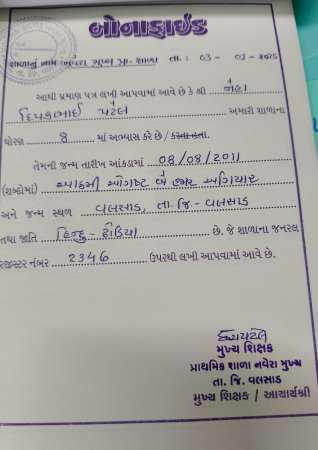 બોનાફાઇડ
શાળાનું નામ નવેરા મુખ્ય પ્રા. શાળા તા. : 03 - 02 - ૨૦૨૫
આથી પ્રમાણ પત્ર લખી આપવામાં આવે છે કે શ્રી
દિપકભાઈ પટેલ અમારી શાળાના
ધોરણ 8 માં અભ્યાસ કરે છે / કરતા હતા.
તેમની જન્મ તારીખ આંકડામાં 08/08/2011
(શબ્દોમાં) આઠમી ઓગષ્ટ બે હજાર અગિયાર
અને જન્મ સ્થળ વલસાડ, તા.જિ-વલસાડ
તથા જાતિ હિન્દુ - ઢોડિયા છે. જે શાળાના જનરલ
રજીસ્ટર નંબર 2346 ઉપરથી લખી આપવામાં આવે છે.
મુખ્ય શિક્ષક
પ્રાથમિક શાળા નવેરા મુખ્ય
તા. જિ. વલસાડ
મુખ્ય શિક્ષક / આચાર્યશ્રી